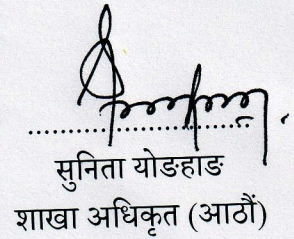 सुनिता योङहाङ
शाखा अधिकृत (आठौं)